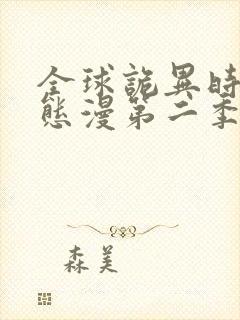 全球詭異時
態漫第二季
森美